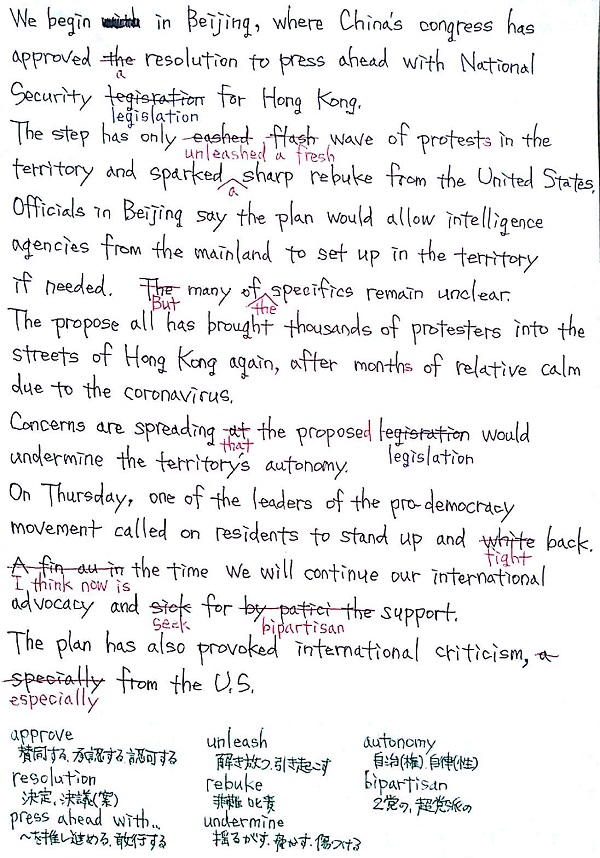 We begin with in Beijing, where China's congress has
approved the resolution to press ahead with National
a
Security legisration for Hong Kong.
legislation
The step has only eashed flash wave of protests in the
unleashed a fresh
territory and sparked sharp rebuke from the United States.
a
Officials in Beijing say the plan would allow intelligence
agencies from the mainland to set up in the territory
if needed. The many of specifics remain unclear.
But the
The propose all has brought thousands of protesters into the
streets of Hong Kong again, after months of relative calm
due to the coronavirus.
Concerns are spreading at the proposed legisration would
that legislation
undermine the territory's autonomy.
On Thursday, one of the leaders of the pro-democracy
movement called on residents to stand up and white back.
fight
A fin au in the time we will continue our international
I think now is
advocacy and sick for by patici the support.
seek bipartisan
The plan has also provoked international criticism, a
specially from the U.S.
especially
approve unleash autonomy
賛同する, 承認する, 認可する 解き放つ, 引き起こす 自治(権), 自律(性)
resolution rebuke bipartisan
決定, 決議(案) 非難, 叱責 2党の, 超党派の
press ahead with... undermine
〜を推し進める, 敢行する 揺るがす, 脅かす, 傷つける